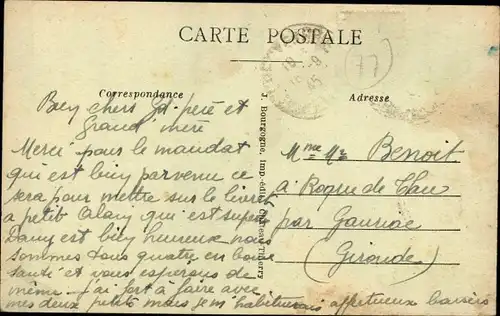 CARTE POSTALE
Correspondance
Adresse
J. Bourgogne, Imp.-édit., Château-Thierry
77
Bien chers Gd-père et
Grand'mère
Merci pour le mandat
qui est bien parvenu ce
sera pour mettre sur le livret
a petit Alain qui est superbe
Dany est bien heureux nous
sommes tous quatre en bonne
santé et vous espérons de
même. j'ai fort à faire avec
mes deux petits mais je m'habituerai affectueux baisers
Mme Benoit
a Roque de Thau
par Gauriac
(Gironde)